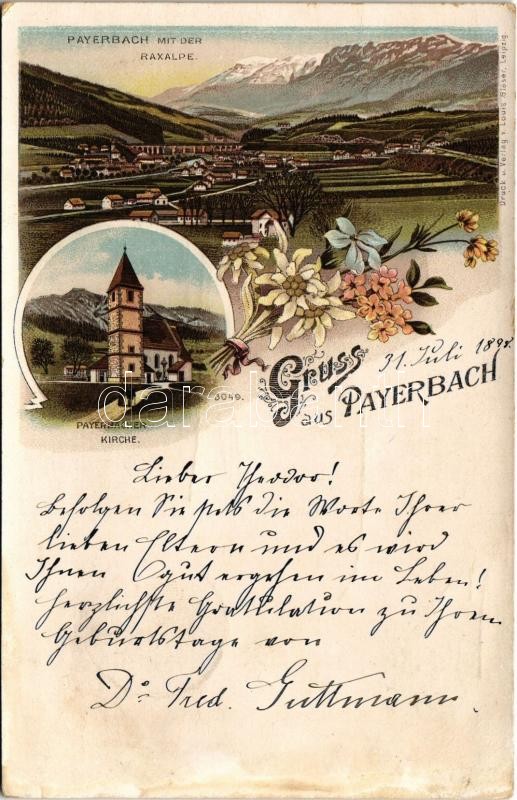 PAYERBACH MIT DER
RAXALPE.
Druck u. Verlag v. Louis Glaser, Leipzig.
PAYERBACHER
KIRCHE.
3049.
Gruss
aus PAYERBACH
31. Juli 189
darabanth
Lieber Theodor!
Befolgen Sie stets die Worte Ihrer
lieben Eltern und es wird
Ihnen gut ergehen im Leben!
Herzlichste Gratulation zu Ihrem
Geburtstage von
Dr Fred. Guttmann.